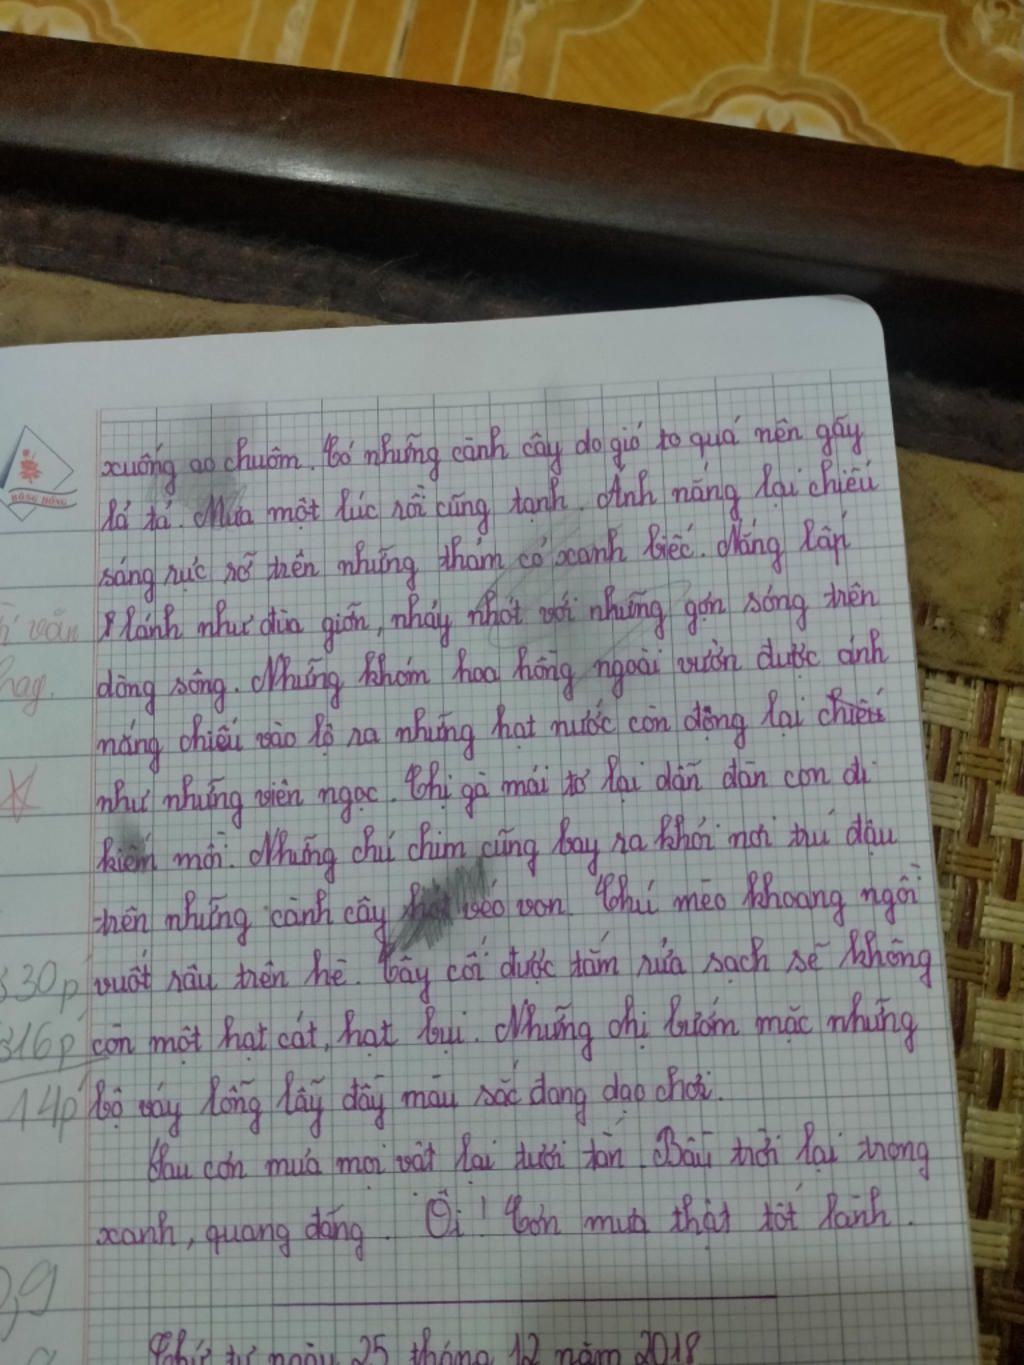 xuống ao chuôm. Có những cành cây do gió to quá nên gãy
lá tả. Mưa một lúc rồi cũng tạnh. Ánh nắng lại chiếu
sáng rực rỡ trên những thảm cỏ xanh biếc. Nắng lấp
lánh như đùa giỡn, nhảy nhót với những gợn sóng trên
dòng sông. Những khóm hoa hồng ngoài vườn được ánh
nắng chiếu vào lộ ra những hạt nước còn đọng lại chiếu
như những viên ngọc. Chị gà mái tơ lại dẫn đàn con đi
kiếm mồi. Những chú chim cũng bay ra khỏi nơi trú đậu
trên những cành cây hót véo von. Chú mèo khoang ngồi
vuốt râu trên hè. Cây cối được tắm rửa sạch sẽ không
còn một hạt cát, hạt bụi. Những chị bướm mặc những
bộ váy lỗng lẫy đầy màu sắc dang dạo chơi.
Sau cơn mưa mọi vật lại tươi tắn. Bầu trời lại trong
xanh, quang đãng. Ôi! Cơn mưa thật tốt lành.
Thứ tư ngày 25 tháng 12 năm 2018
văn
hay.
30p
316p
14p
HỒNG HÀ